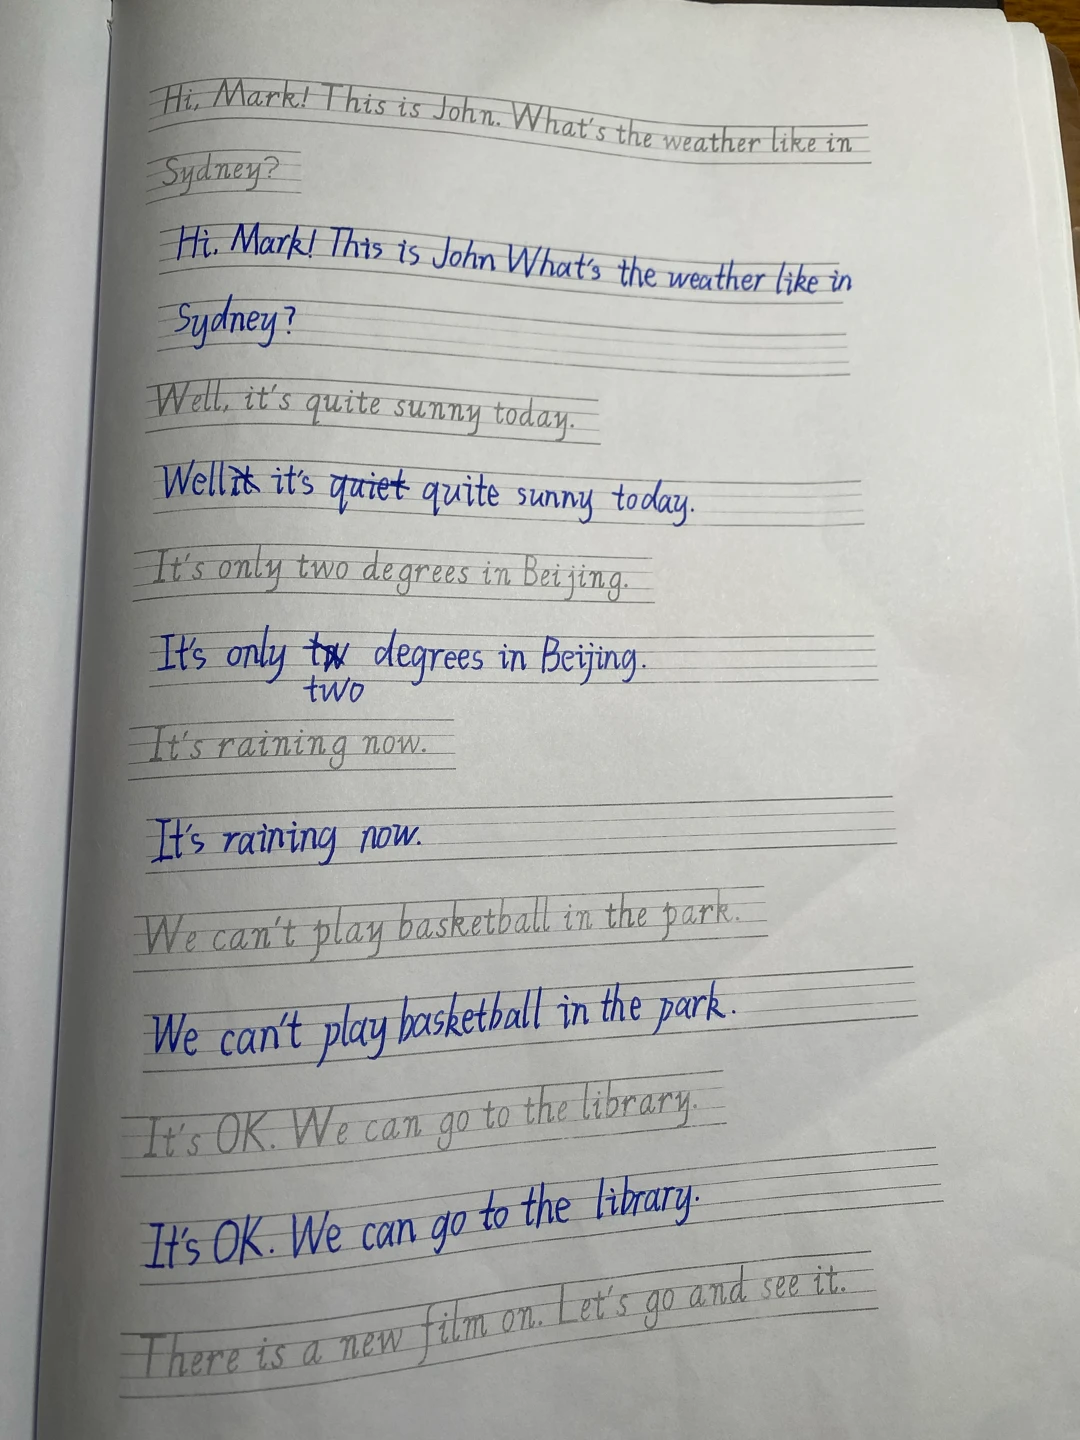 Hi, Mark! This is John. What's the weather like in
Sydney?
Hi. Mark! This is John What's the weather like in
Sydney?
Well, it's quite sunny today.
Well it it's quiet quite sunny today.
It's only two degrees in Beijing.
It's only tw degrees in Beijing.
two
It's raining now.
It's raining now.
We can't play basketball in the park.
We can't play basketball in the park.
It's OK. We can go to the library.
It's OK. We can go to the library.
There is a new film on. Let's go and see it.